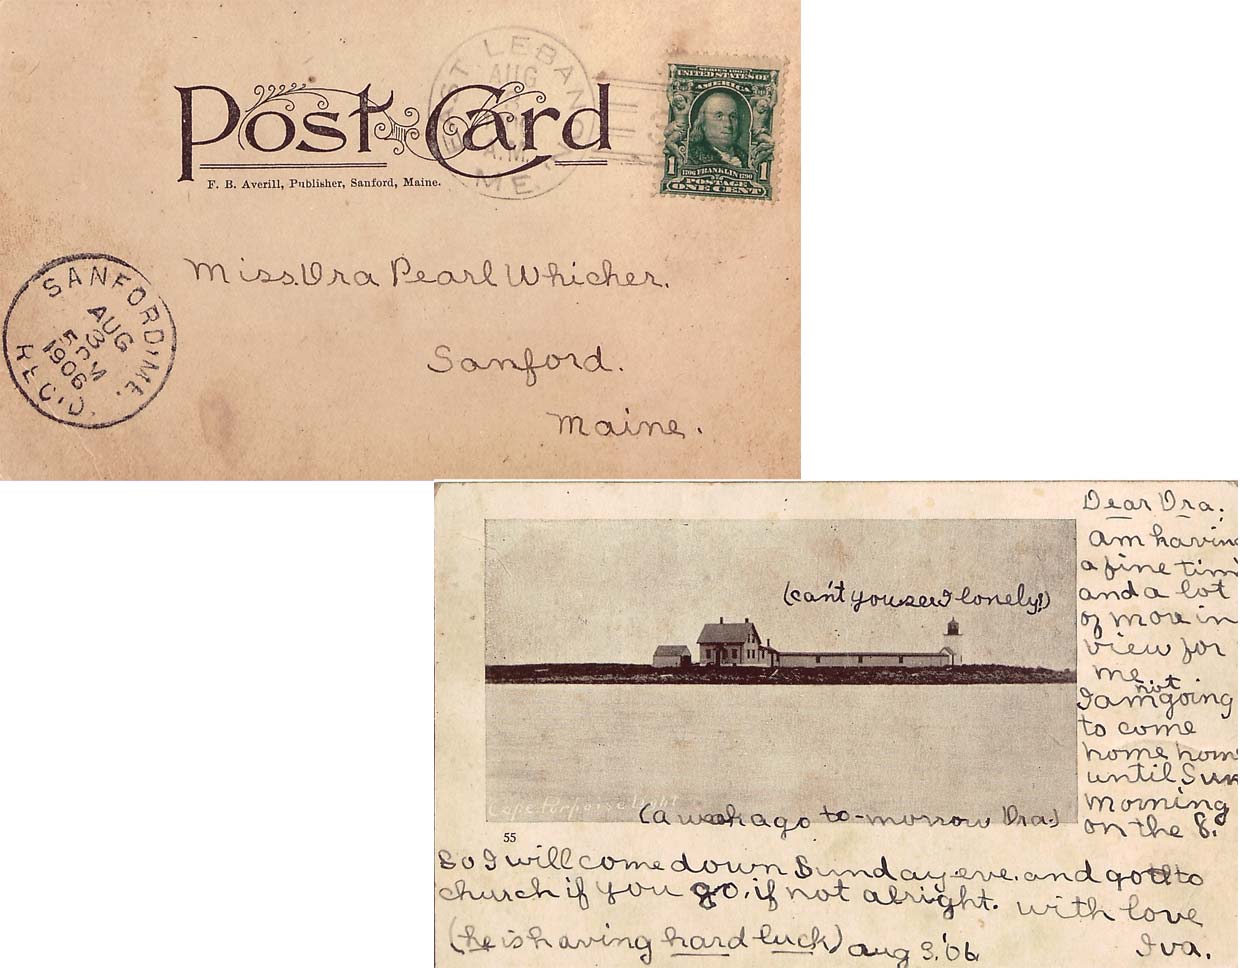 Post Card
F. B. Averill, Publisher, Sanford, Maine.
EAST LEBANON
AUG
3
A.M.
ME.
SERIES 1902
UNITED STATES OF
AMERICA
1706 FRANKLIN 1790
1 POSTAGE 1
ONE CENT
SANFORD, ME.
AUG
3
5 PM
1906
REC'D.
Miss. Ora Pearl Whicher.
Sanford.
Maine.
Dear Ora.
am having
a fine tim
and a lot
of mor in
view for
me
not
I am going
to come
home hom
until Sun
morning
on the 8.
(can't you see I lonely!)
Cape Porpoise Light
(a week ago to-morrow Ora.)
55
so I will come down Sunday eve. and go to
church if you go, if not alright. with love
(he is having hard luck) Aug 3, '06 Iva.